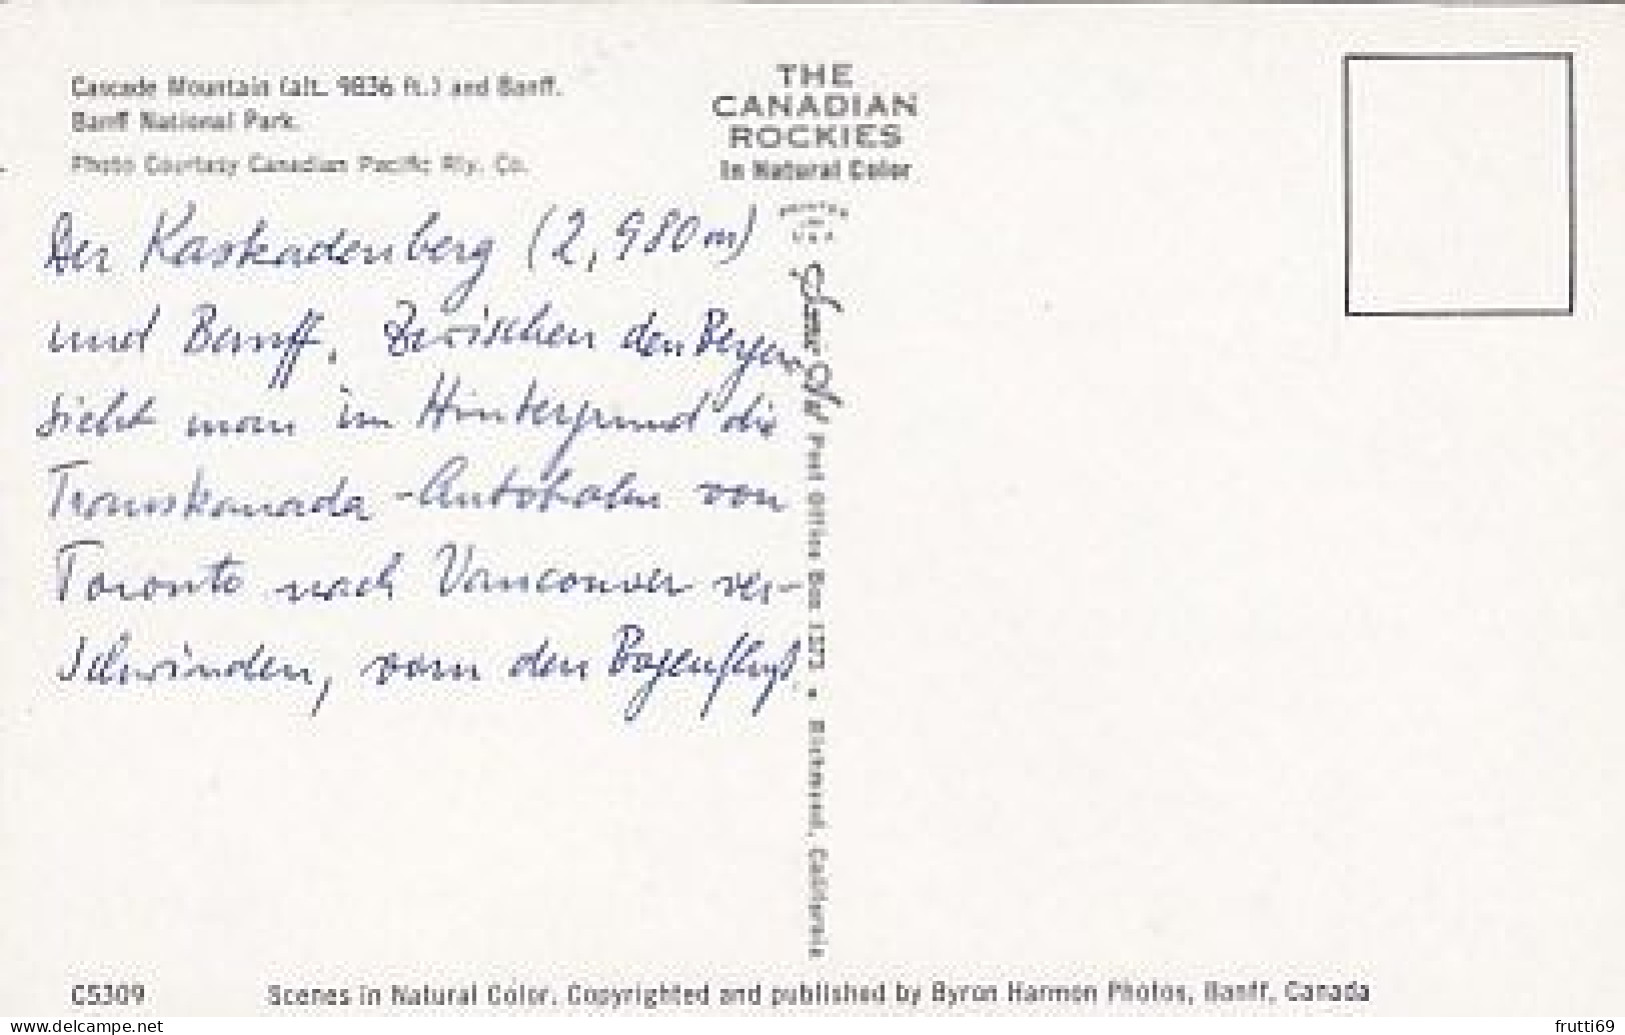 Cascade Mountain (alt. 9836 ft.) and Banff.
Banff National Park.
Photo Courtesy Canadian Pacific Rly. Co.
THE
CANADIAN
ROCKIES
In Natural Color
Der Kaskadenberg (2,980 m)
und Banff. Zwischen den Bergen
sieht man im Hintergrund die
Transkanada-Autobahn von
Toronto nach Vancouver ver-
schwinden, vorn den Bogenfluß.
Post Office Box 1273 • Richmond, California
C5309
Scenes in Natural Color. Copyrighted and published by Byron Harmon Photos, Banff, Canada
frutti69